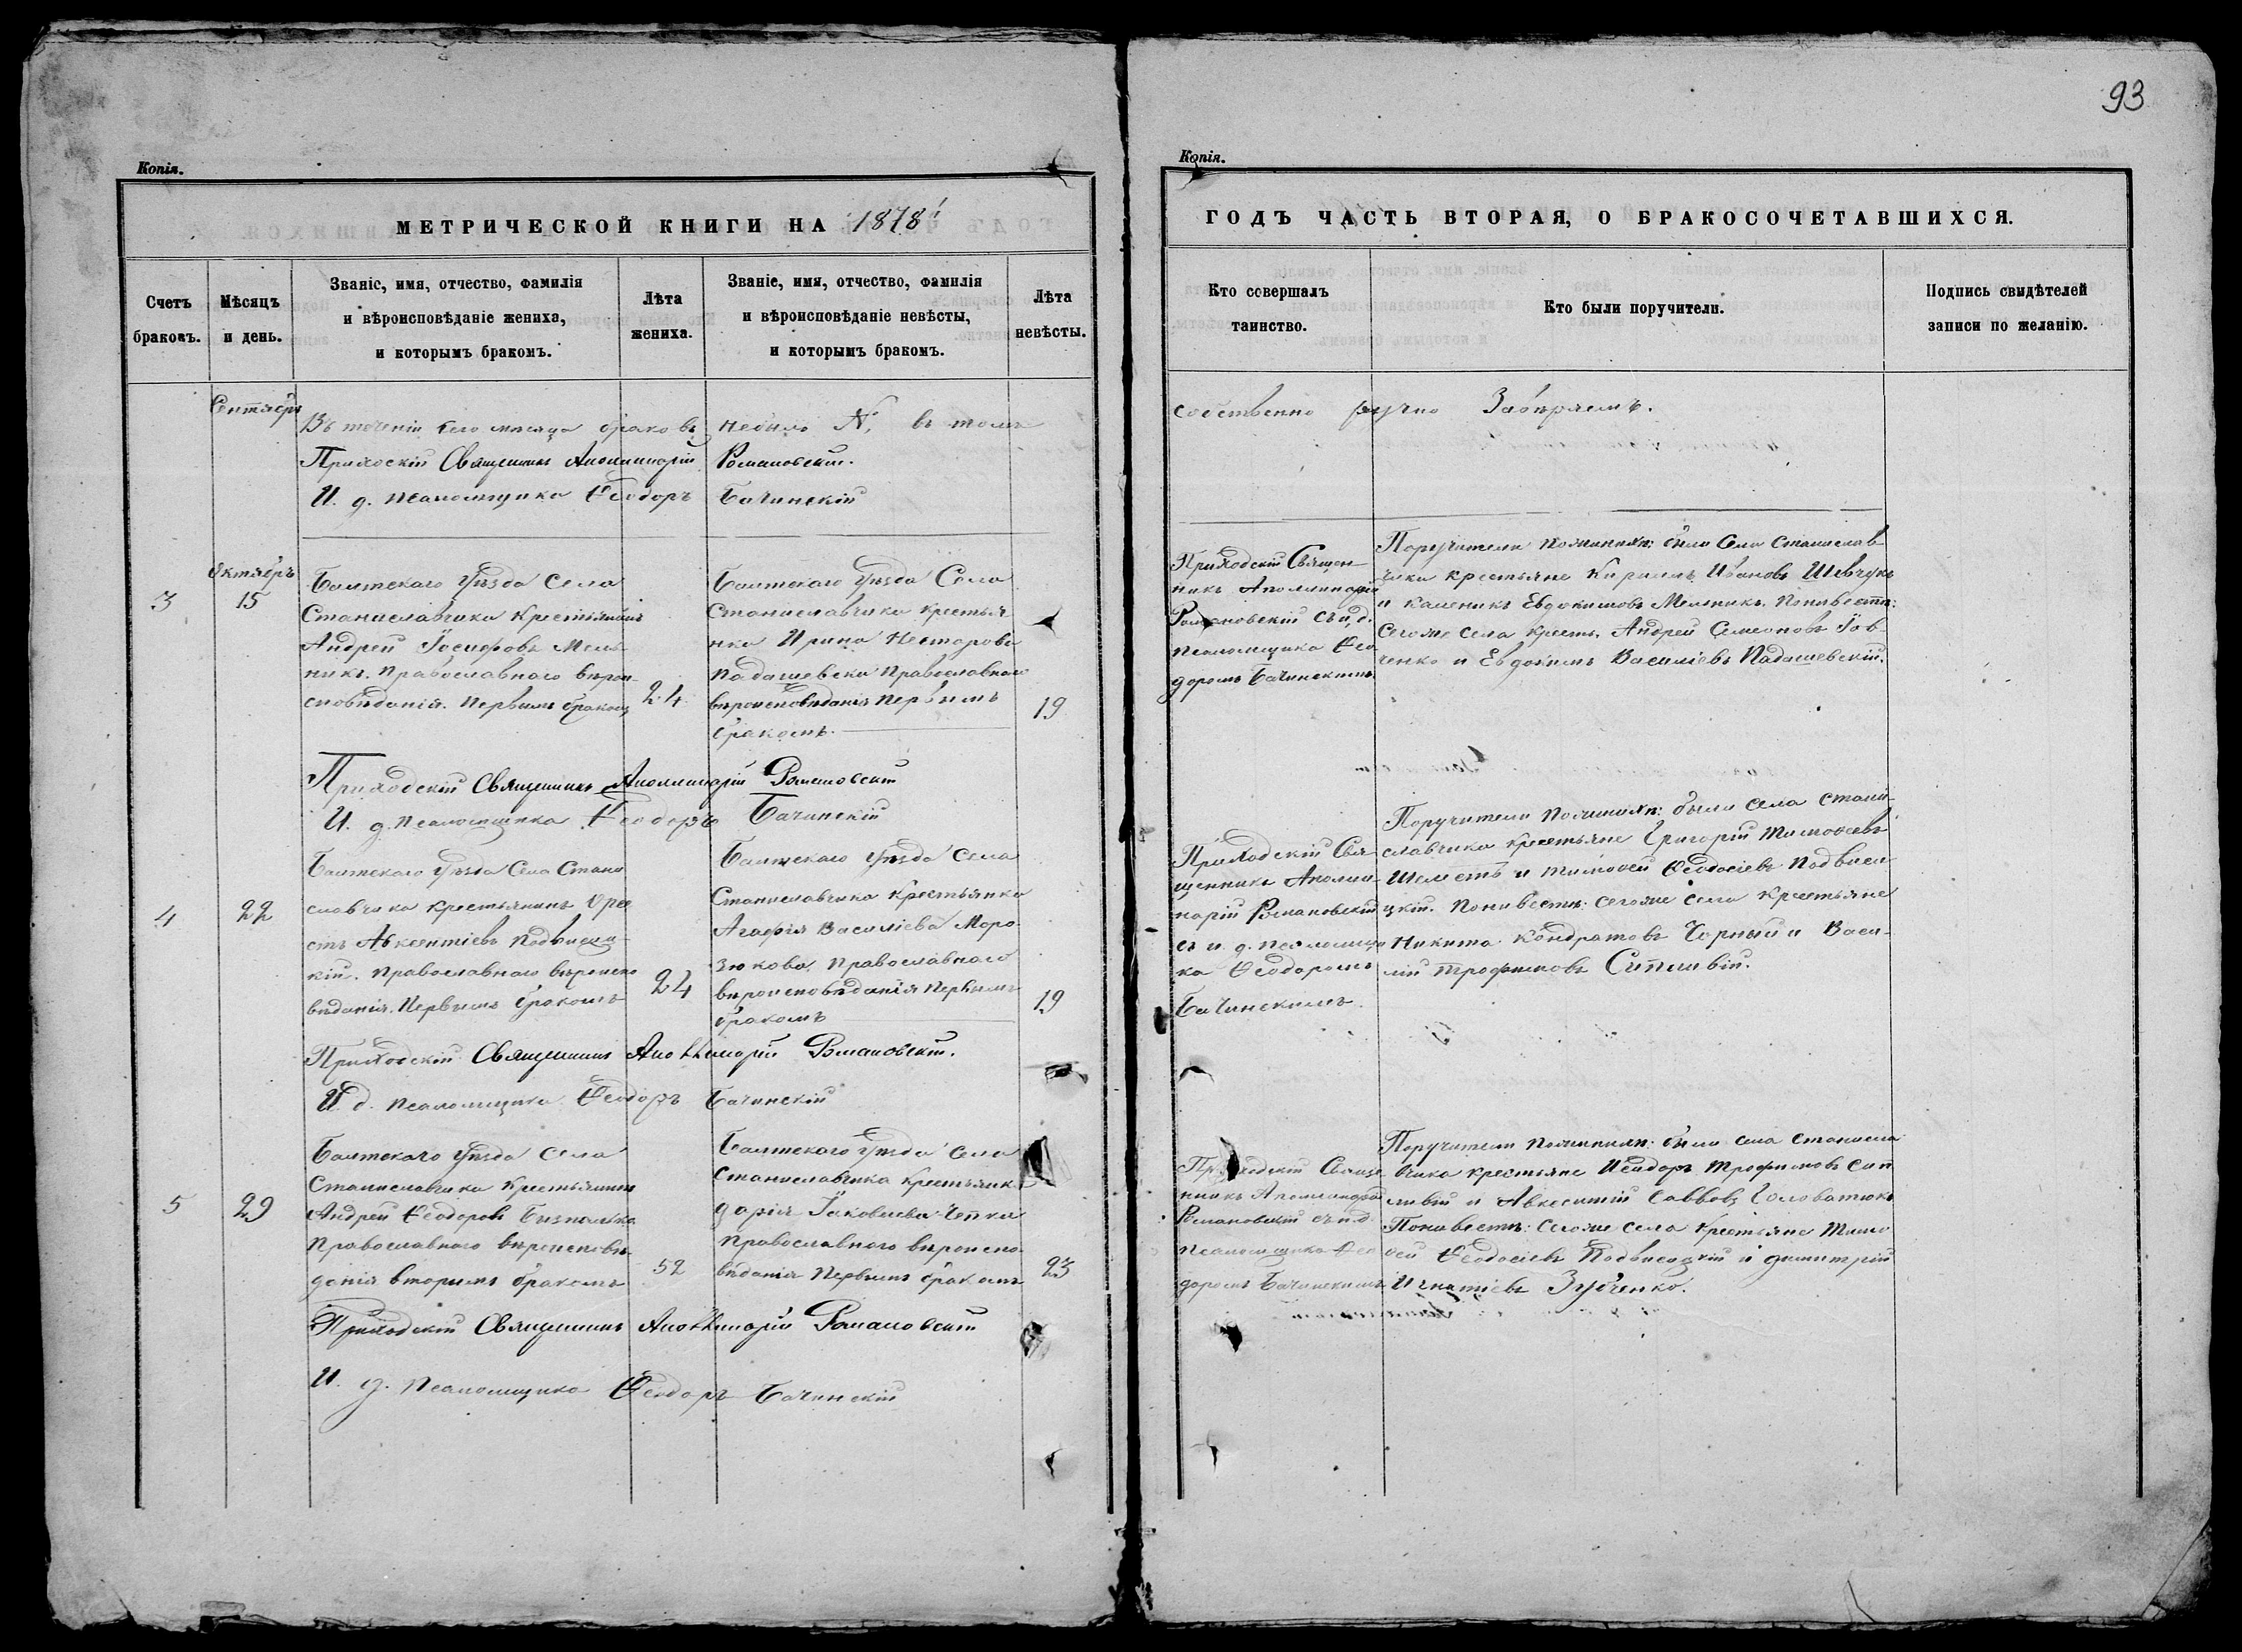 93
Копія.
МЕТРИЧЕСКОЙ КНИГИ НА 1878
Счетъ браковъ.
Мѣсяцъ и день.
Званіе, имя, отчество, фамилія
и вѣроисповѣданіе жениха,
и которымъ бракомъ.
Лѣта
жениха.
Званіе, имя, отчество, фамилія
и вѣроисповѣданіе невѣсты,
и которымъ бракомъ.
Лѣта
невѣсты.
Сентябрь
Въ теченіи сего мѣсяца браковъ небыло въ томъ
Приходскій Священникъ Аполлинарій Романовскій.
И. д. псаломщика Ѳеодоръ Бачинскій
Октябрь
3
15
Балтскаго Уѣзда Села
Станиславчика Крестьянинъ
Андрей Іосифовъ Мель-
никъ. Православнаго вѣрои-
сповѣданія. Первымъ бракомъ
24
Балтскаго Уѣзда Села
Станиславчика крестья
нка Ирина Несторова
Падашевска Православнаго
вѣроисповѣданія первымъ
бракомъ.
19
Приходскій Священникъ Аполлинарій Романовскій
И. д. псаломщика Ѳеодоръ Бачинскій
4
22
Балтскаго Уѣзда Села Стани
славчика крестьянинъ Оре
стъ Авксентіевъ Подвысоц-
кій. Православнаго вѣроиспо
вѣданія. Первымъ бракомъ
24
Балтскаго Уѣзда Села
Станиславчика Крестьянка
Агафія Василіева Моро-
зюкова, Православнаго
вѣроисповѣданія Первымъ
бракомъ
19
Приходскій Священникъ Аполлинарій Романовскій.
И. д. псаломщика Ѳеодоръ Бачинскій
5
29
Балтскаго Уѣзда Села
Станиславчика Крестьянинъ
Андрей Ѳеодоровъ
Православнаго вѣроисповѣ-
данія вторымъ бракомъ
52
Балтскаго Уѣзда Села
Станиславчика крестьянка
Дарія Іаковлева Чепка
Православнаго вѣроиспо-
вѣданія Первымъ бракомъ
23
Приходскій Священникъ Аполлинарій Романовскій
И. д. Псаломщика Ѳеодоръ Бачинскій
Копія.
ГОДЪ ЧАСТЬ ВТОРАЯ, О БРАКОСОЧЕТАВШИХСЯ.
Кто совершалъ
таинство.
Кто были поручители.
Подпись свидѣтелей
записи по желанію.
собственно ручно Завѣряемъ.
Приходскій Священ-
никъ Аполлинарій
Романовскій съ и. д.
псаломщика Ѳео
доромъ Бачинскимъ
Поручители по женихѣ: были Села Станислав
чика крестьяне Кириллъ Ивановъ Шевчукъ
и Каленикъ Евдокимовъ Мельникъ. По невѣстѣ:
Сегоже села крест. Андрей Семеоновъ
и Евдокимъ Василіевъ Падашевскій.
Приходскій Свя-
щенникъ Аполли-
нарій Романовскій
съ и. д. псаломщи
ка Ѳеодоромъ
Бачинскимъ.
Поручители по женихѣ: были села Стани-
славчика крестьяне Григорій Тимоѳеевъ
Шелестъ и Тимоѳей Ѳеодосіевъ Подвысо
цкій. По невѣстѣ: сегоже села крестьяне
Никита Кондратовъ Чорный и Васи-
лій Трофимовъ Сипливій.
Приходскій Священ
никъ Аполлинарій
Романовскій съ и. д.
псаломщика Ѳео
доромъ Бачинскимъ
Поручители по женихѣ: были села Станисла
вчика крестьяне Исидоръ Трофимовъ Сип
ливій и Авксентій Саввовъ Головатюкъ
По невѣстѣ: сегоже села Крестьяне Тимо
ѳей Ѳеодосіевъ Подвысоцкій и Димитрій
Игнатіевъ Зубченко.